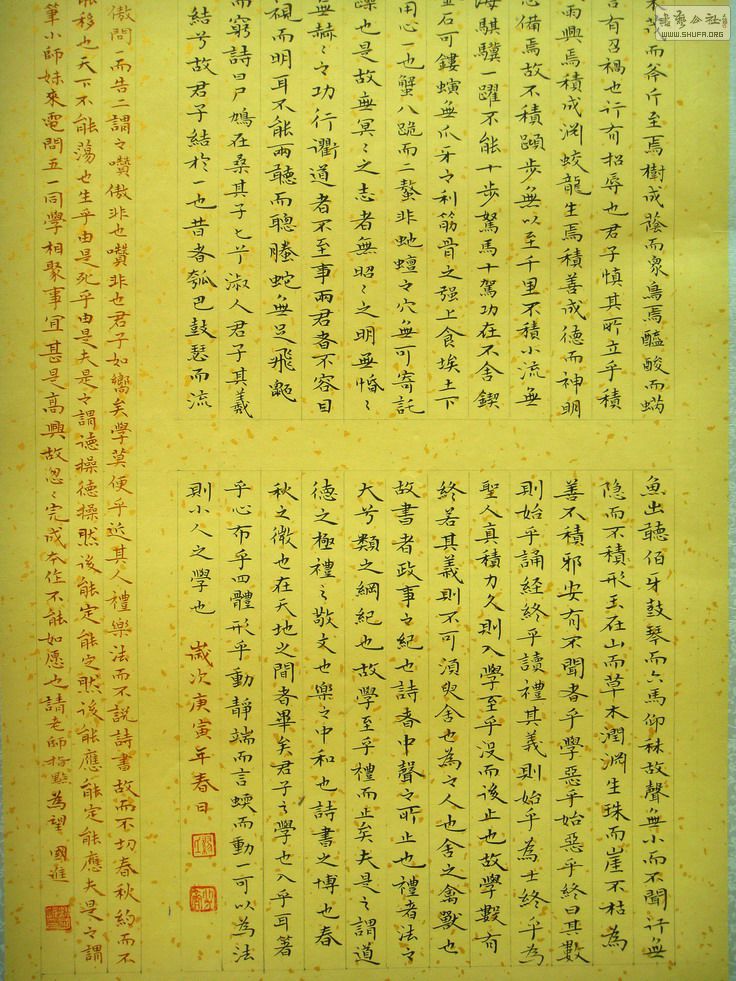 茂而斧斤至焉樹成蔭而衆鳥焉醯酸而蜹
言有召禍也行有招辱也君子慎其所立乎積
雨興焉積成淵蛟龍生焉積善成德而神明
心備焉故不積蹞步無以至千里不積小流無
海騏驥一躍不能十步駑馬十駕功在不舍鍥
金石可鏤螾無爪牙之利筋骨之强上食埃土下
用心一也蟹八跪而二螯非虵蟺之穴無可寄託
躁也是故無冥々之志者無昭々之明無惛々
無赫々之功行衢道者不至事兩君者不容目
視而明耳不能兩聽而聰螣蛇無足飛鼫
而窮詩曰尸鳩在桑其子七兮淑人君子其義
結兮故君子結於一也昔者瓠巴鼓瑟而流
魚出聽伯牙鼓琴而六馬仰秣故聲無小而不聞行無
隐而不積形玉在山而草木潤淵生珠而崖不枯為
善不積邪安有不聞者乎學惡乎始惡乎終曰其數
則始乎誦経終乎讀禮其義則始乎為士終乎為
聖人真積力久則入學至乎没而後止也故學數有
終若其義則不可須臾舍也為之人也舍之禽獸也
故書者政事之紀也詩者中聲之所止也禮者法之
大兮類之綱紀也故學至乎禮而止矣夫是之謂道
德之極禮之敬文也樂之中和也詩書之博也春
秋之微也在天地之間者畢矣君子之學也入乎耳著
乎心布乎四體形乎動靜端而言蝡而動一可以為法
則小人之學也 歲次庚寅年春日
傲問而告二謂之囋傲非也囋非也君子如嚮矣學莫便乎近其人禮樂法而不説詩書故而不切春秋約而不
能移也天下不能蕩也生乎由是死乎由是夫是之謂德操德操然後能定能定然後能應能定能應夫是之謂
筆小師妹來電問五一同學相聚事宜甚是高興故忽忽完成本作不能如愿也請老師指點為望 國進
書藝公社
WWW.SHUFA.ORG